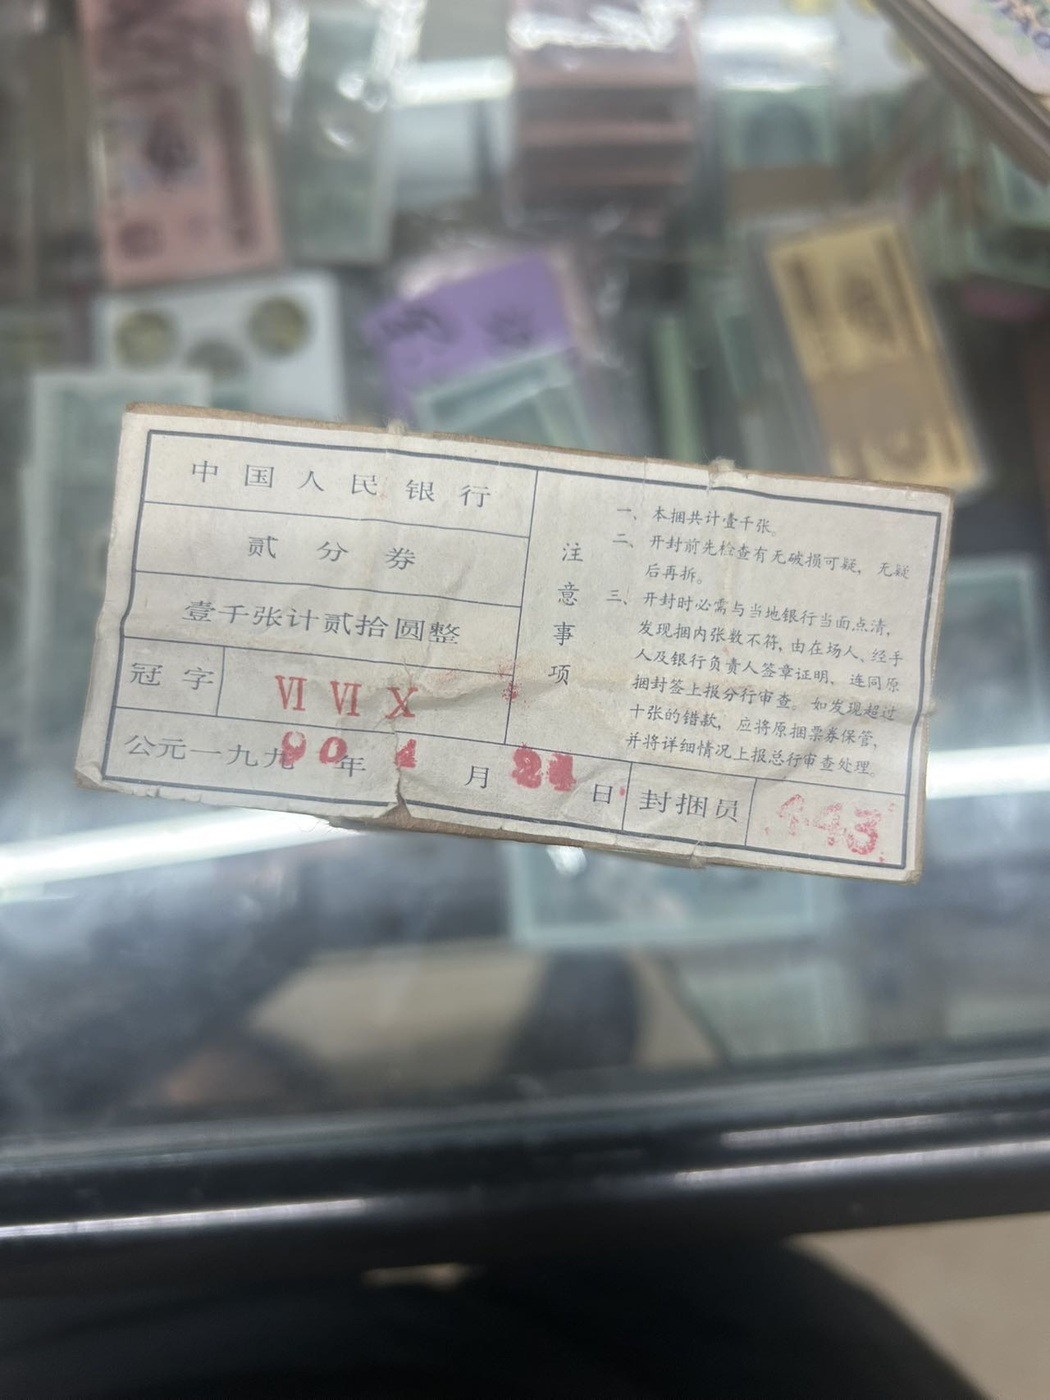 中国人民银行
贰分券
壹千张计贰拾圆整
冠字 VI VI X
公元一九九90年 4月 24日
封捆员 443
注意事项
一、本捆共计壹千张。
二、开封前先检查有无破损可疑，无疑
后再拆。
三、开封时必需与当地银行当面点清，
发现捆内张数不符，由在场人、经手
人及银行负责人签章证明、连同原
捆封签上报分行审查。如发现超过
十张的错款，应将原捆票券保管，
并将详细情况上报总行审查处理。